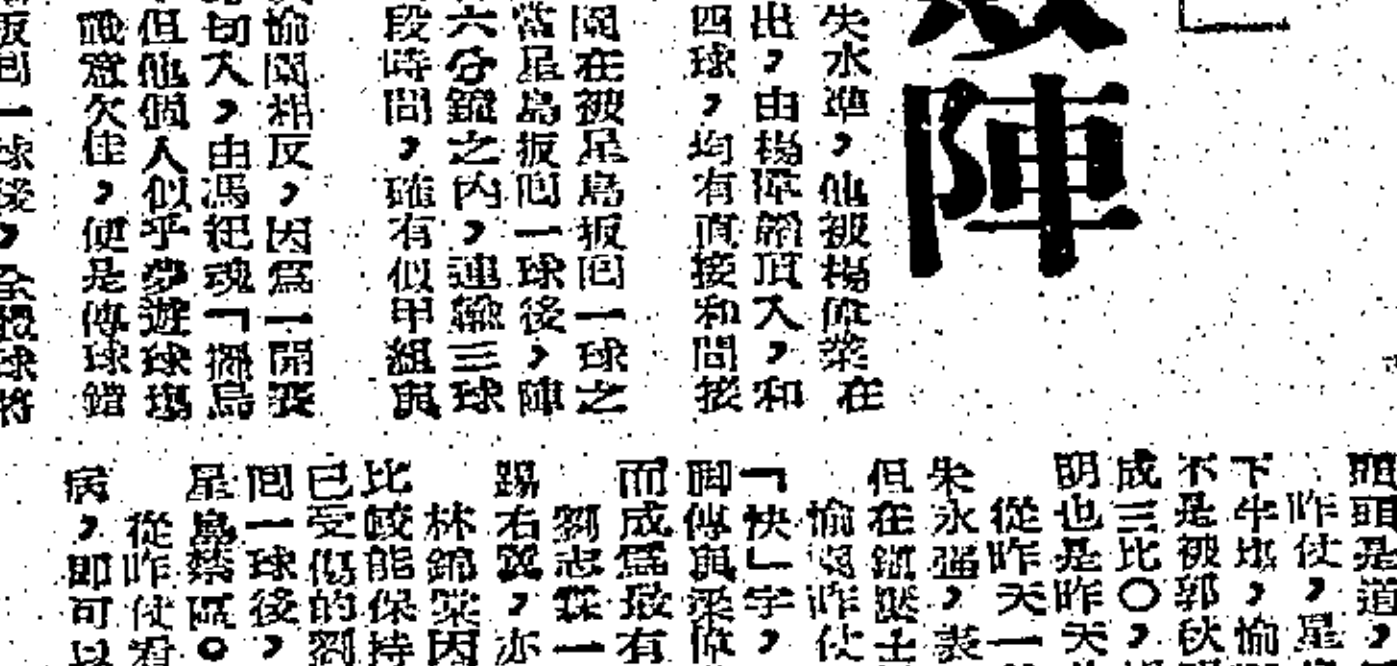 陣
失水準，他被楊偉棠在
出，由楊霖韜頂入，和
四球，均有直接和間接
園在被星島扳回一球之
當星島扳回一球後，陣
六分鐘之內，連輸三球
段時間，確有似甲組與
愉園相反，因為一開賽
切入，由馮紀魂「擺烏
但他個人似乎夢遊球場
戰意欠佳，便是傳球錯
扳回一球後，全體球將
頭頭是道，
昨仗，星
下半場，愉
不是被郭秋
成三比〇，
明也是昨天
從昨天一
朱永強，裴
但在鎮壓士
愉園昨仗
「快」字，
脚傳與梁偉
而成為最有
劉志霖一
踢右翼，亦
林錦棠因
比較能保持
已受傷的劉
回一球後，
星島禁區。
從昨仗看
病，即可以